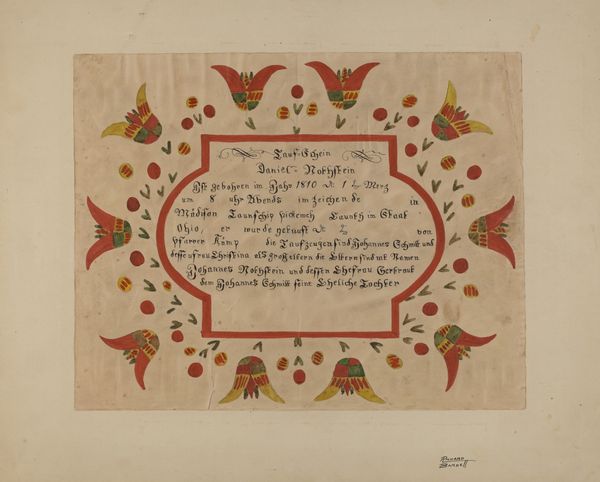 Tauf-Schein
Daniel - Nothstein
Ist gebohren im Jahr 1810 1 Merz
um 8 uhr Abends im zeichen de
Mädison Taunschip in
Ohio, er wurde getauft von
Pfarrer Kämp die Taufzeugen sind Johannes Schmitt und
Christina als großeltern die Eltern sind mit Namen
Johannes Nothstein und dessen Ehefrau Gertraut
dem Johannes Schmitt seine Eheliche Tochter
Richard
Barnett